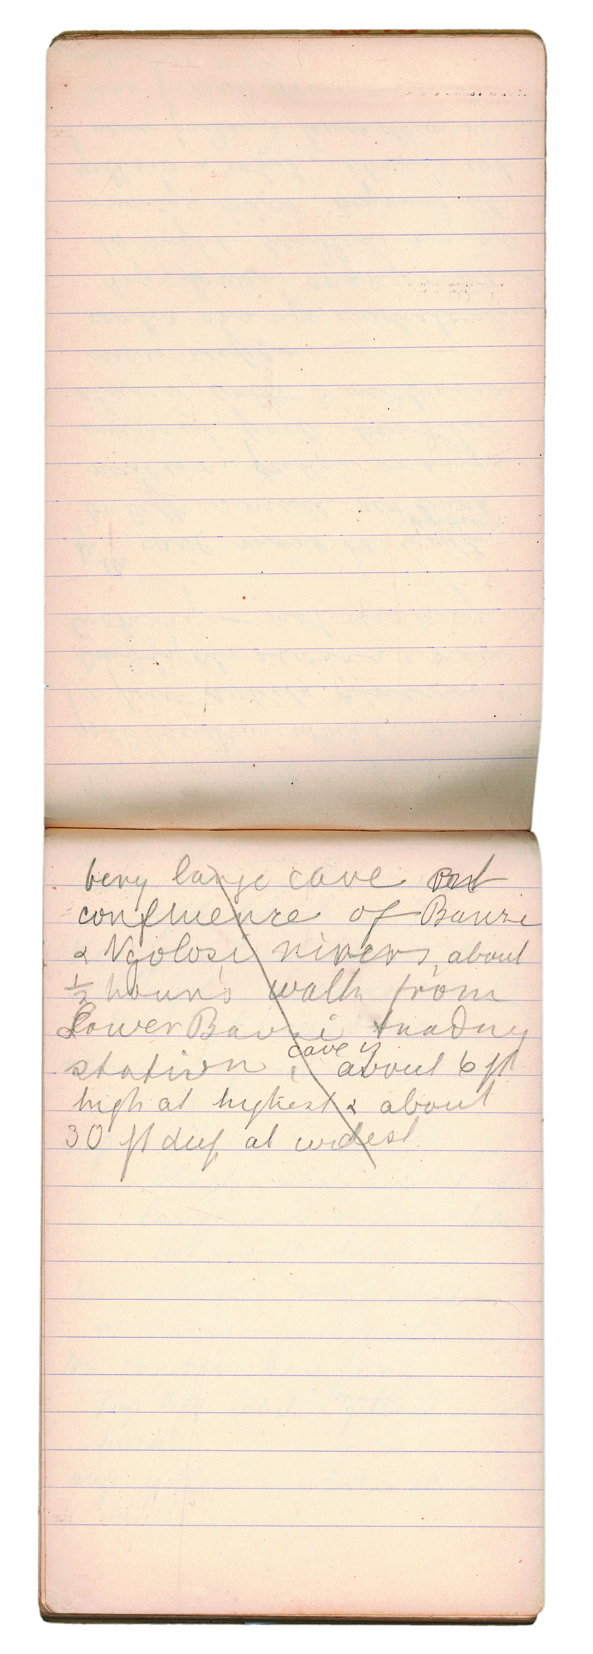 very large cave
confluence of Banzi
& Ngolosi rivers, about
½ hour's walk from
Lower Banzi trading
station, cave is about 6 ft
high at highest & about
30 ft deep at widest